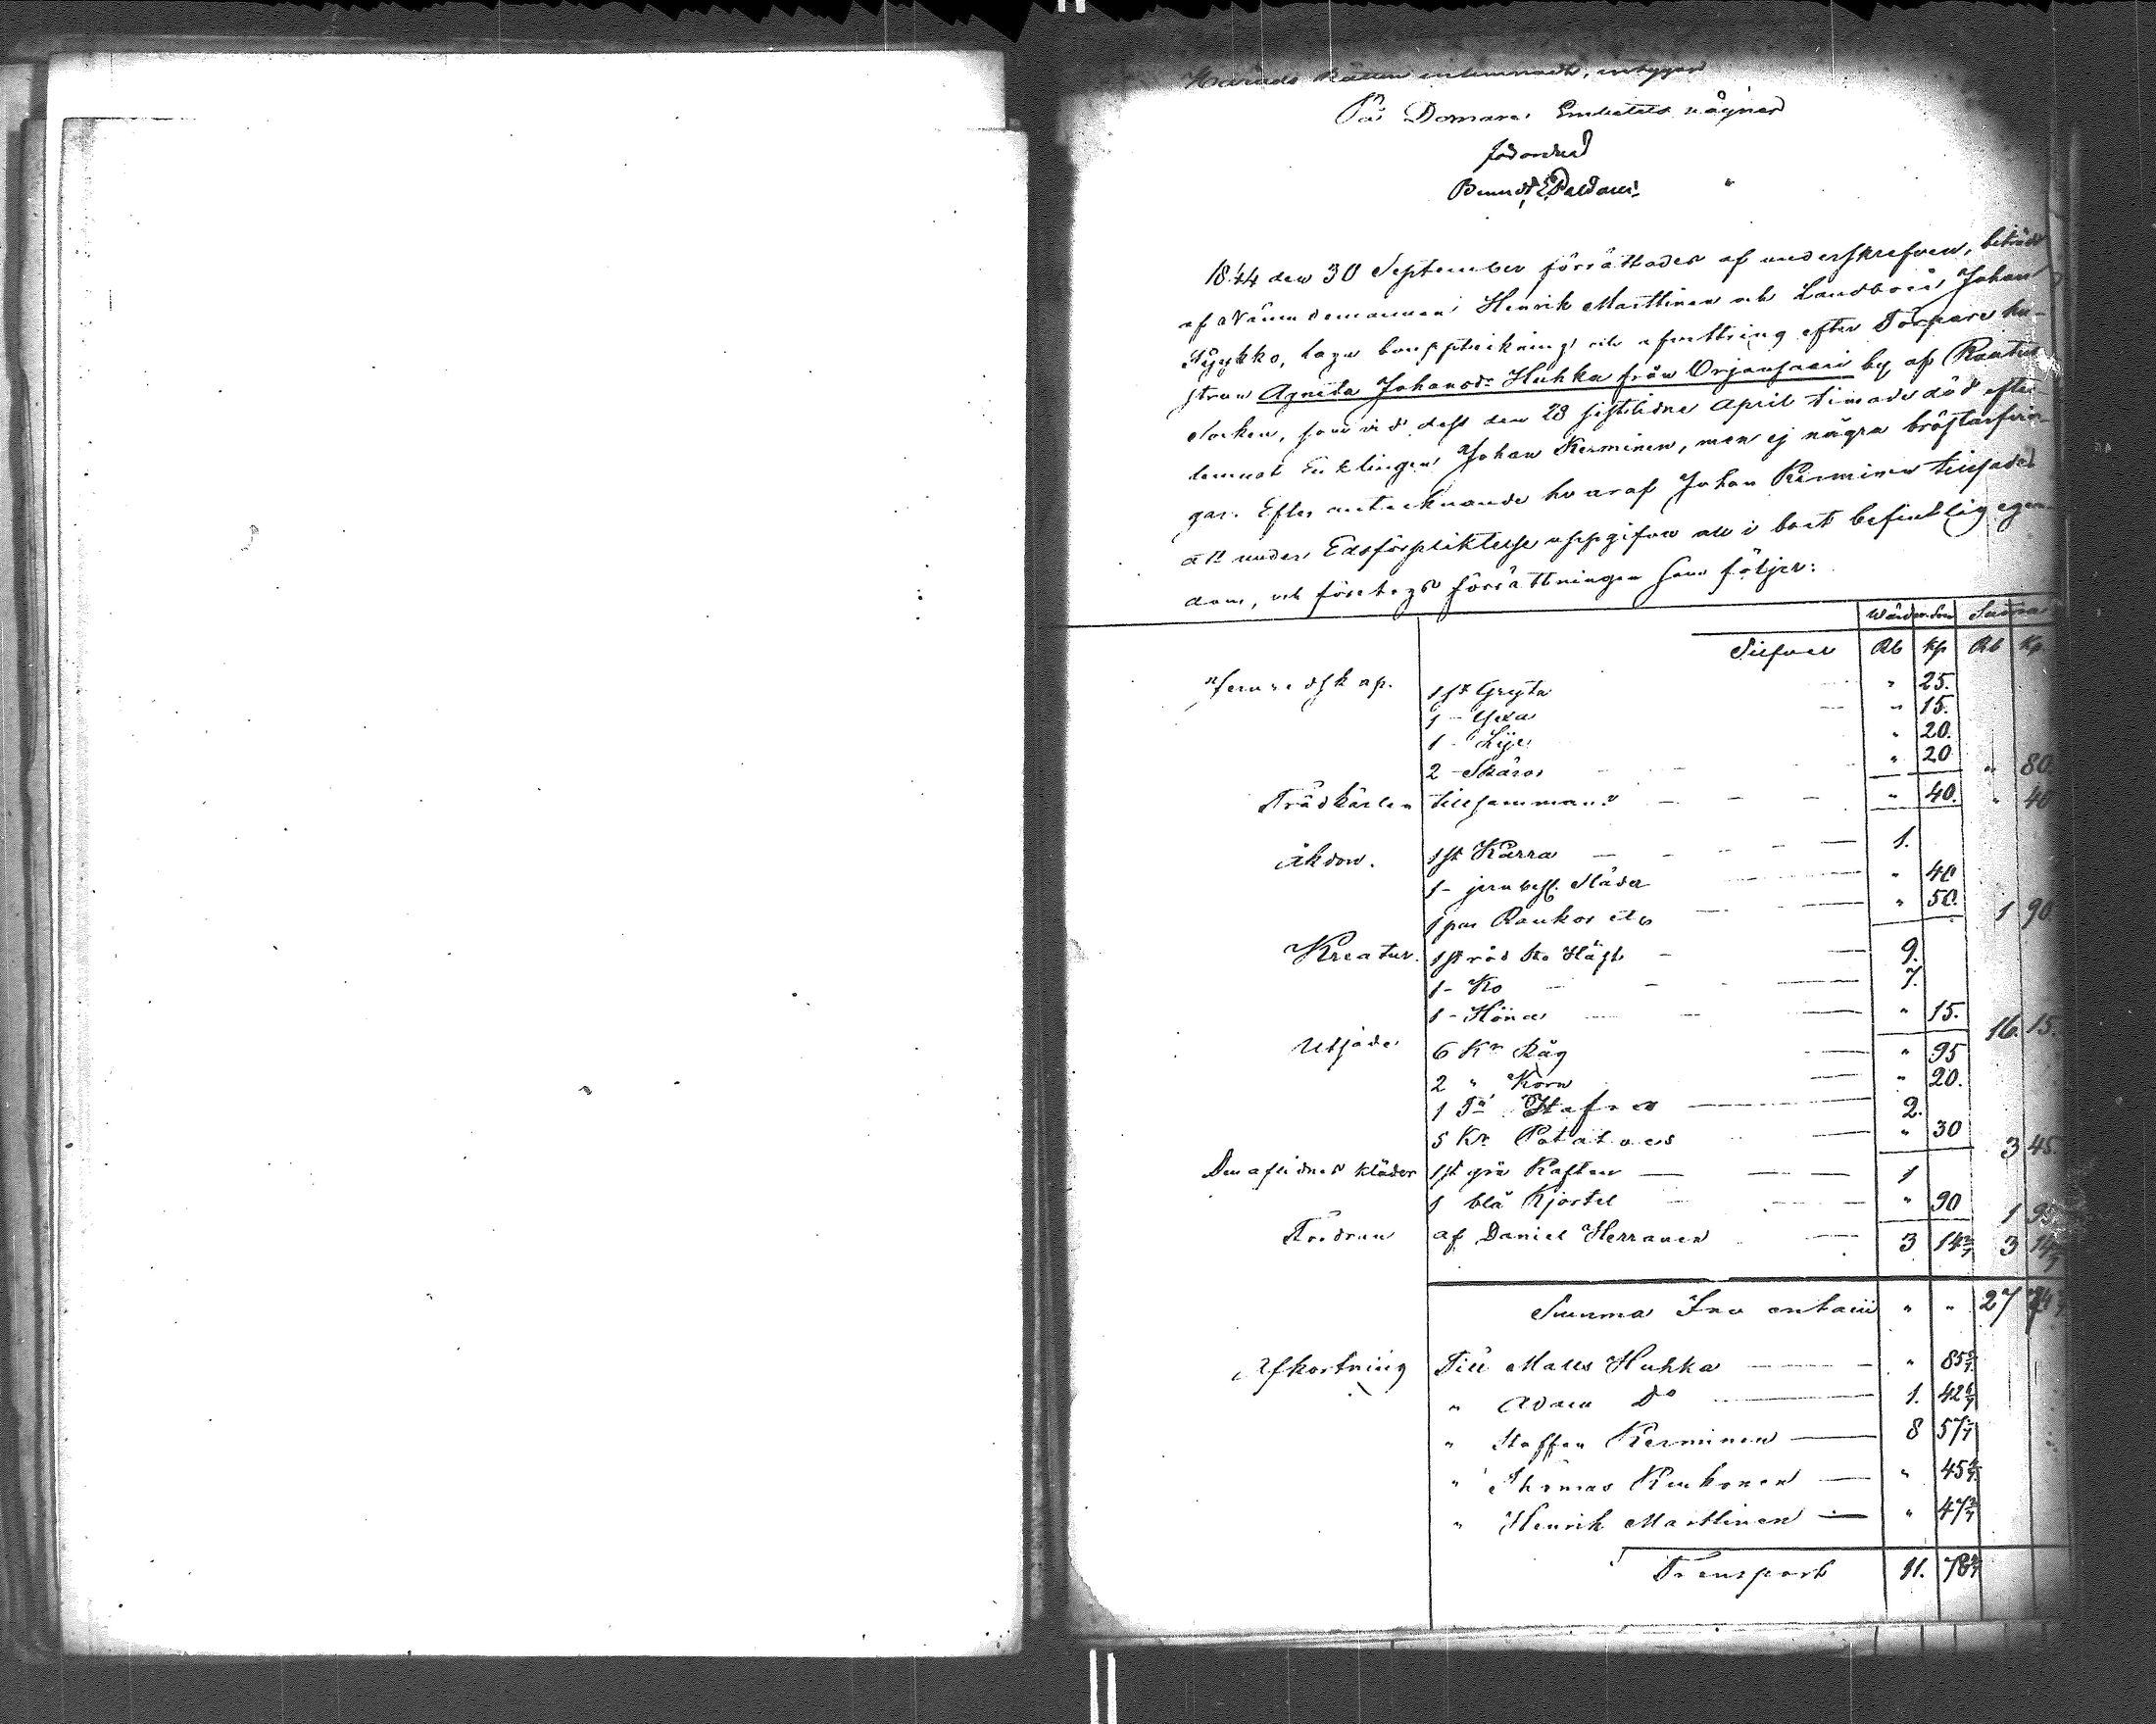 Härads Rätten inlemnadt, intygar
På Domare Embetets vägnar
1844 den 30 September förrättades af underskrefven, biträdd
af Nämndemannen Henrik Marttinen och Landboen Johan
laga bouppteckning och afvittring efter Torpare hu-
strun Agneta Johansdr Huhka från Orjansaari by af Rautus
Socken, som vid dess den 28 sistlidne April timade död efter-
lemnat Enklingen Johan Kerminen, men ej några bröstarfvin-
gar. Efter antecknande hvaraf Johan Kerminen tillsades
att under Edsförpliktelse uppgifva all i boet befintlig egen-
dom, och företogs förrättningen som följer:
Värden Summa
Silfver Rb Kp Rb Kp.
Jernredskap. 1 st Gryta " 25.
1 - Yxa " 15.
1 - Lije " 20.
2 - Skäror " 20 " 80.
Trädkärlen tillsammans " 40. " 40
Åkdon. 1 st Kärra 1.
1 - jernbesl. Släder " 40
1 par Rankor etc " 50. 1 90
Kreatur. 1 st röd Häst 9.
1 - Ko 7.
1 - Höna " 15. 16. 15.
Utsäde 6 Kr Råg " 95
2 " Korn " 20.
1 Ta Hafra 2.
5 Kr Potatoes " 30 3 45.
Den aflidnes kläder 1 st grå Kaftan 1
1 blå Kjortel " 90 1 90
Fordran af Daniel Herranen 3 14 2/7 3 14 2/7
Summa Inventarii " " 27 74 2/7
Afkortning Till Matts Huhka " 85 5/7
" Adam Do 1. 42 6/7
" Staffan Kerminen 8 57 1/7
" Thomas Kukonen " 45
" Henrik Marttinen " 47
Transport 11. 78